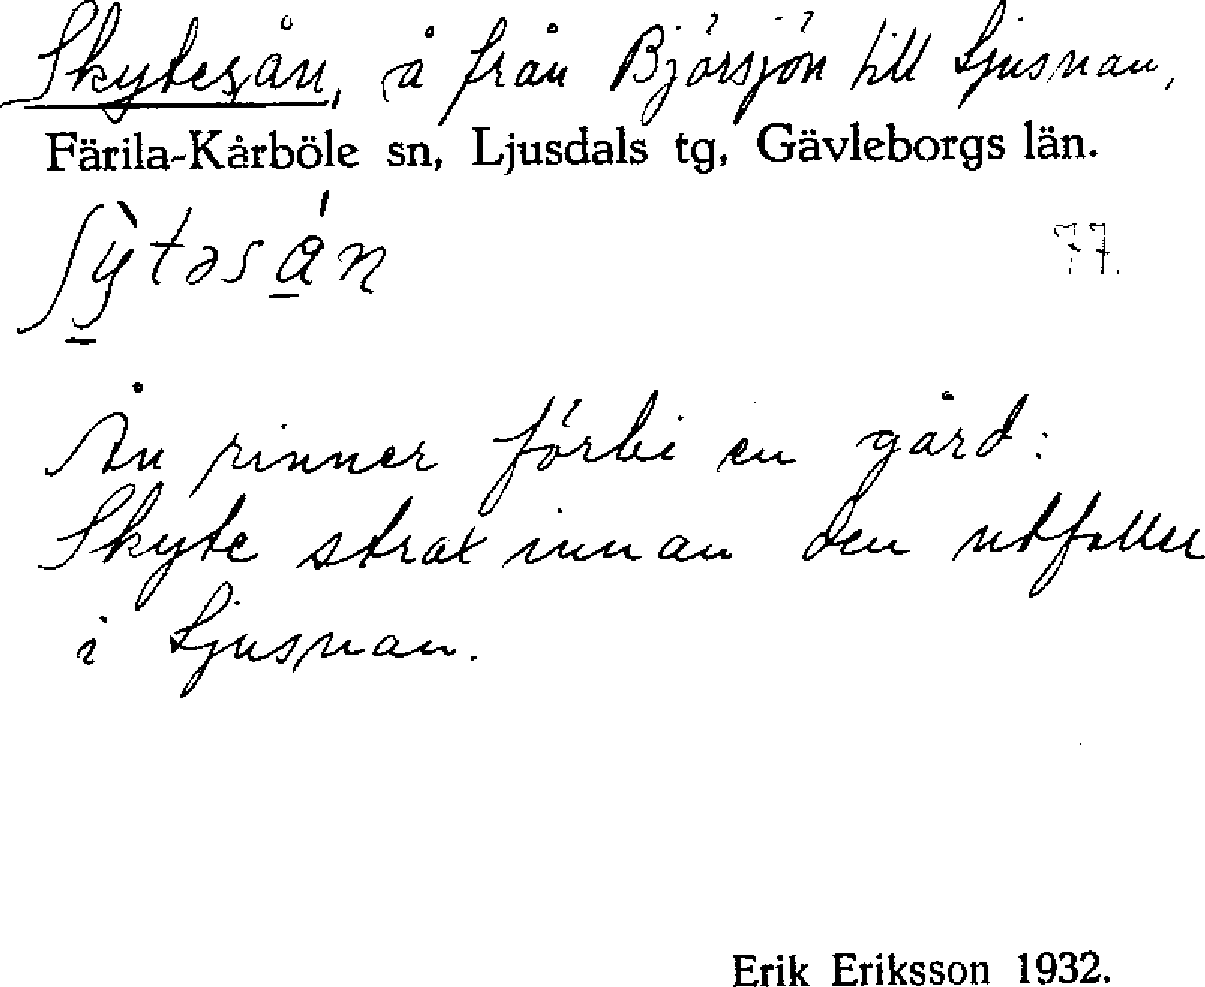 Skytesån, å från Björsjön till Ljusnan,
Färila-Kårböle sn, Ljusdals tg, Gävleborgs län.
ʃỳtəsán
77.
Ån rinner förbi en gård:
Skyte strax innan den utfaller
i Ljusnan.
Erik Eriksson 1932.